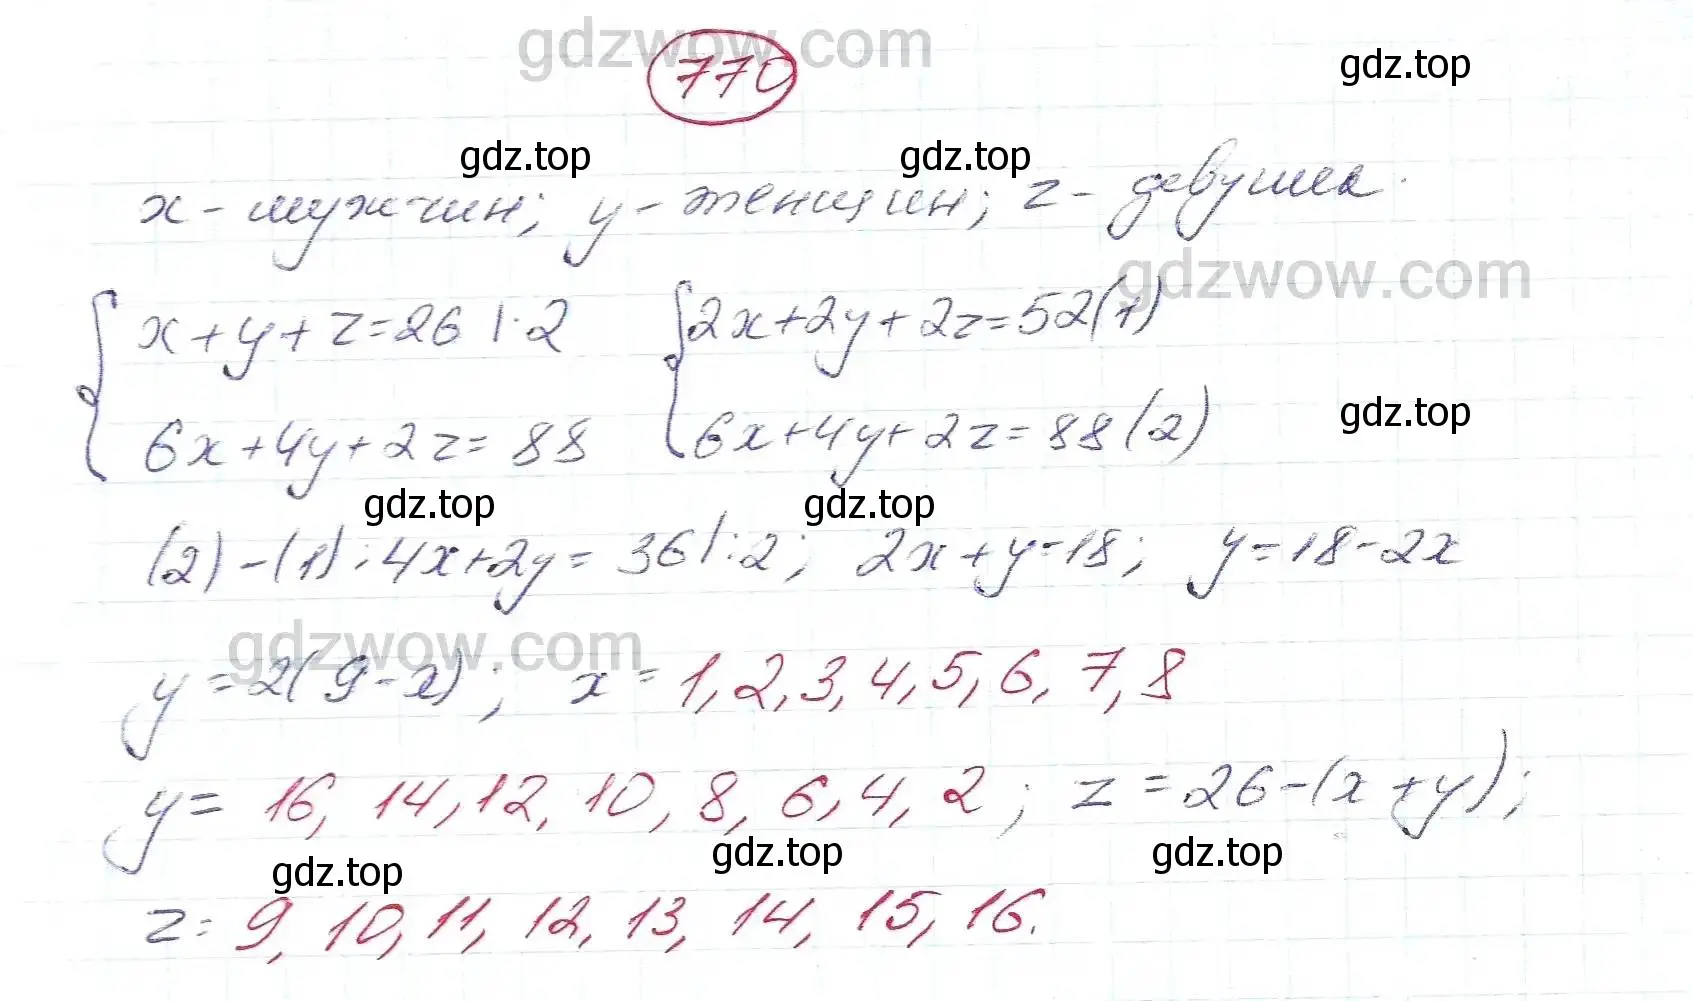 gdzwow.com
770
gdz.top
gdz.top gdz.top
x - мужчин; y - женщин; z - девушек.
gdzwow.com
x+y+z=26 |·2 2x+2y+2z=52(1)
gdz.top
6x+4y+2z=88 6x+4y+2z=88(2)
gdz.top gdz.top
(2)-(1): 4x+2y=36|:2; 2x+y=18; y=18-2x
gdzwow.com
y=2(9-x); x=1,2,3,4,5,6,7,8
y=16,14,12,10,8,6,4,2; z=26-(x+y);
gdz.top gdz.top gdz.top
z=9,10,11,12,13,14,15,16.